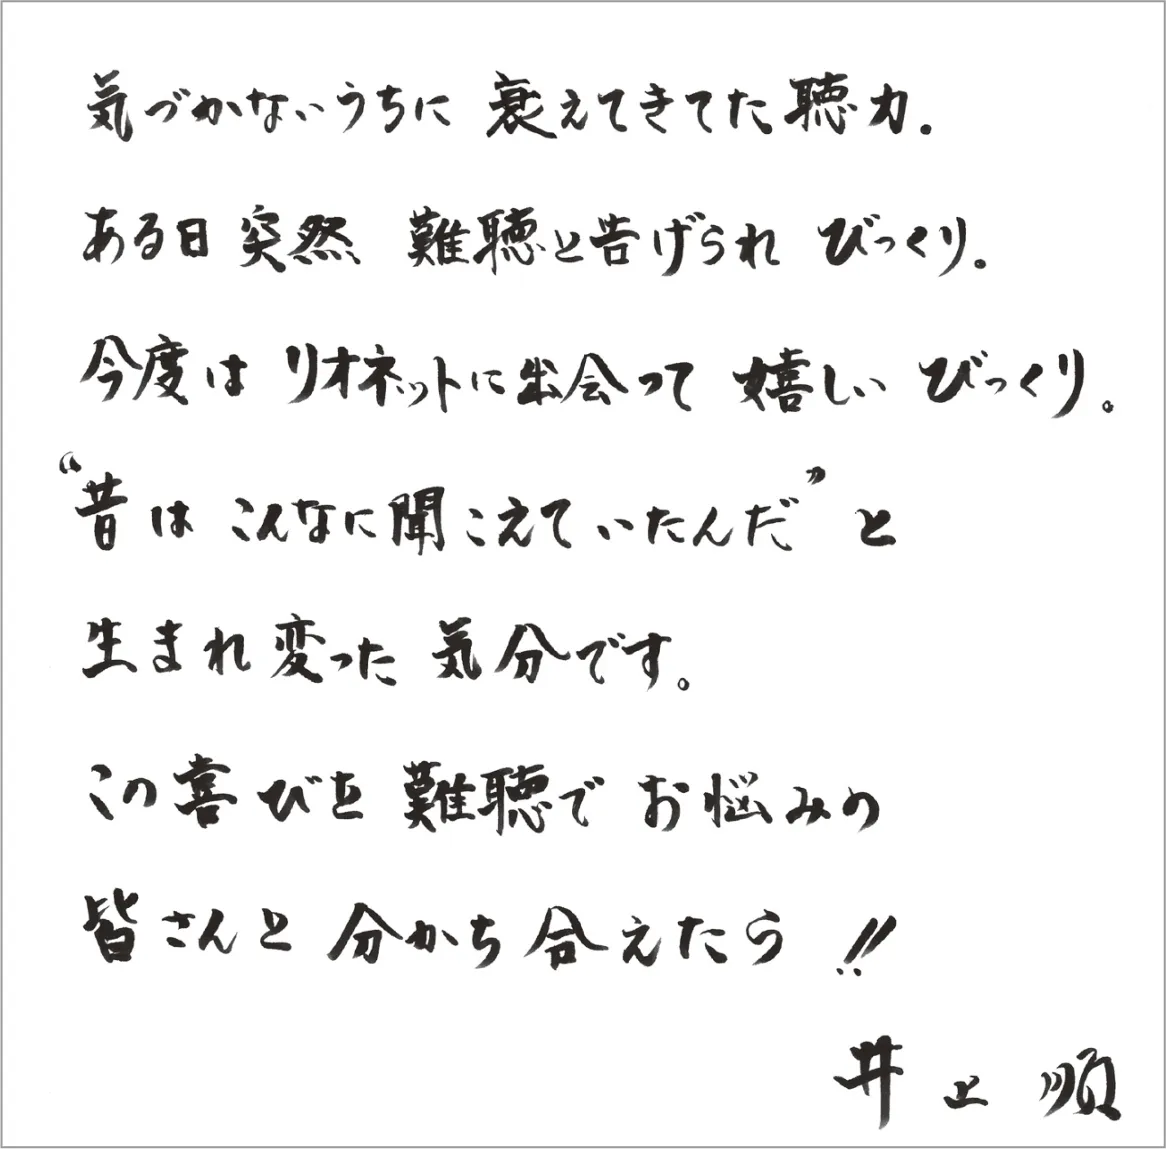 気づかないうちに 衰えてきてた聴力.
ある日突然 難聴と告げられ びっくり.
今度は リオネットに出会って 嬉しい びっくり。
“昔は こんなに聞こえていたんだ” と
生まれ変った 気分です。
この喜びを 難聴で お悩みの
皆さんと 分かち合えたら !!
井上 順